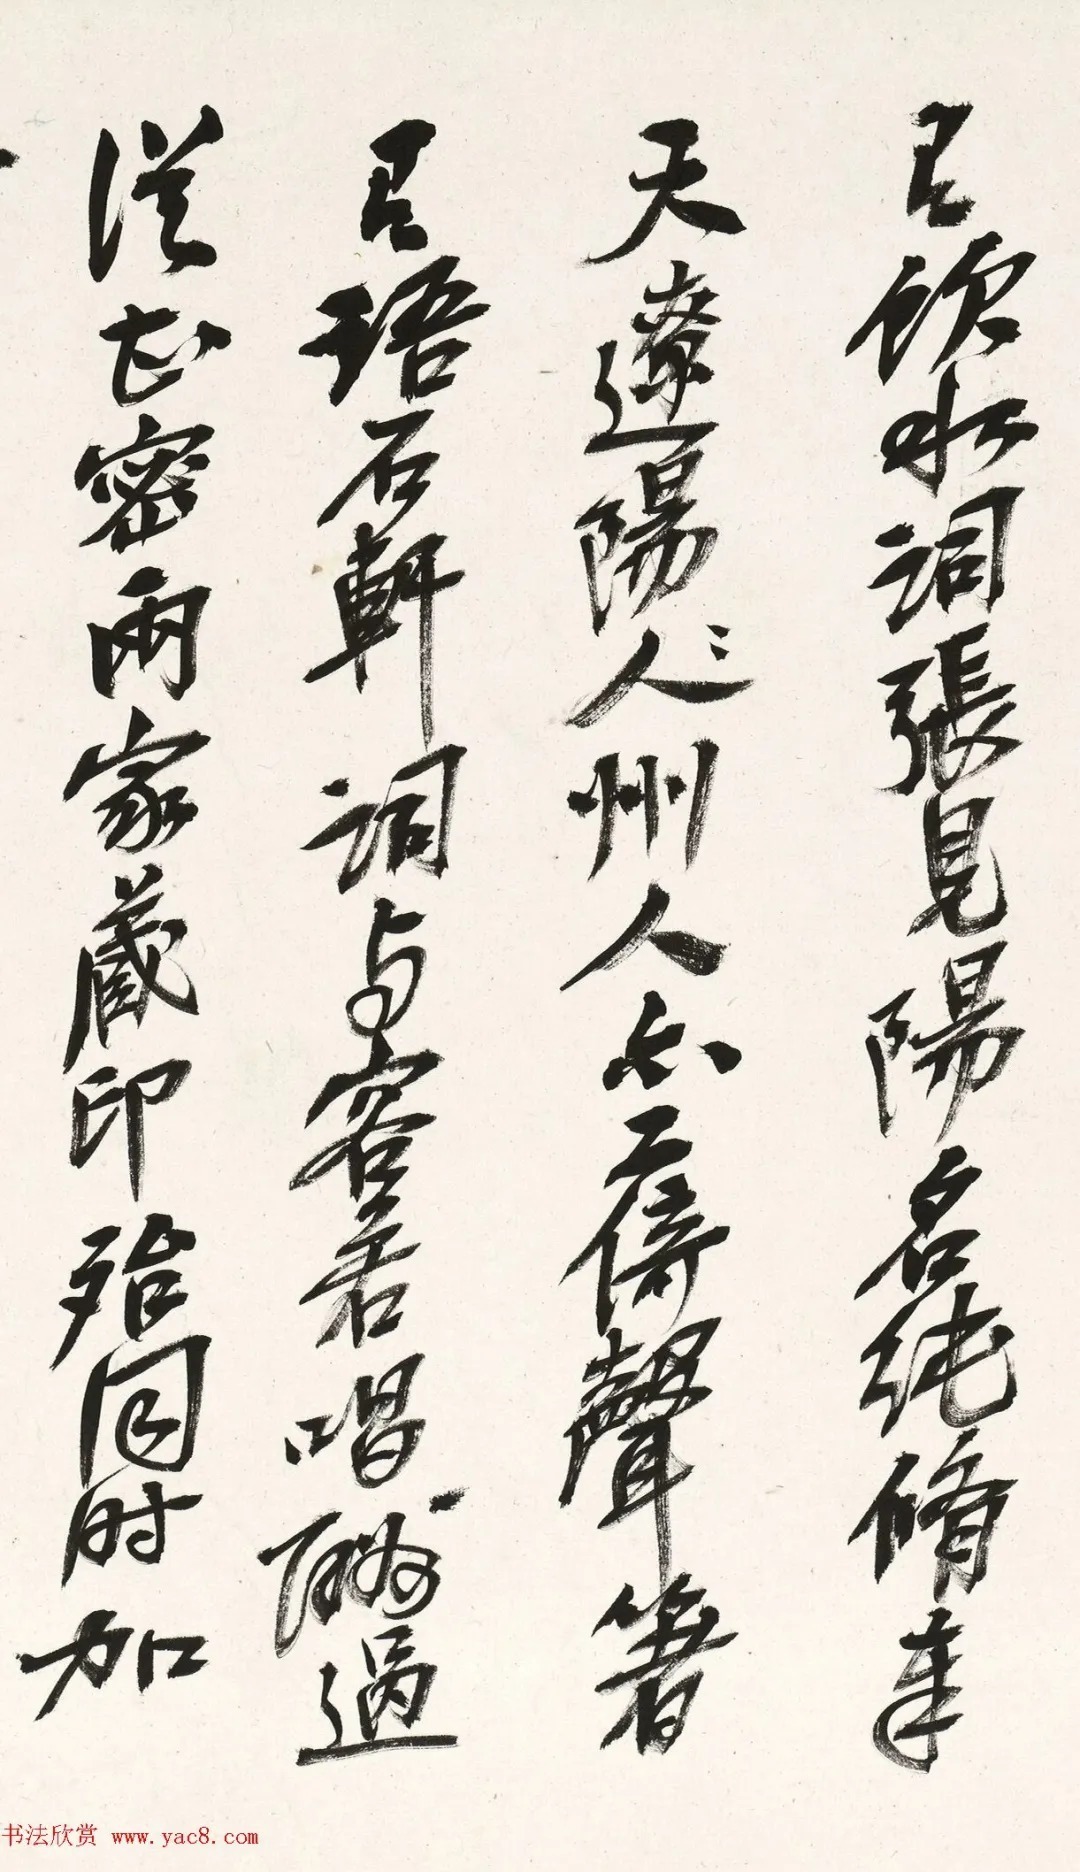 有飲水詞張見陽名純脩奉
天遼陽人一州人亦工倚聲著
有語石軒詞与容若唱酬過
從甚密兩家藏印殆同時加
书法欣赏 www.yac8.com